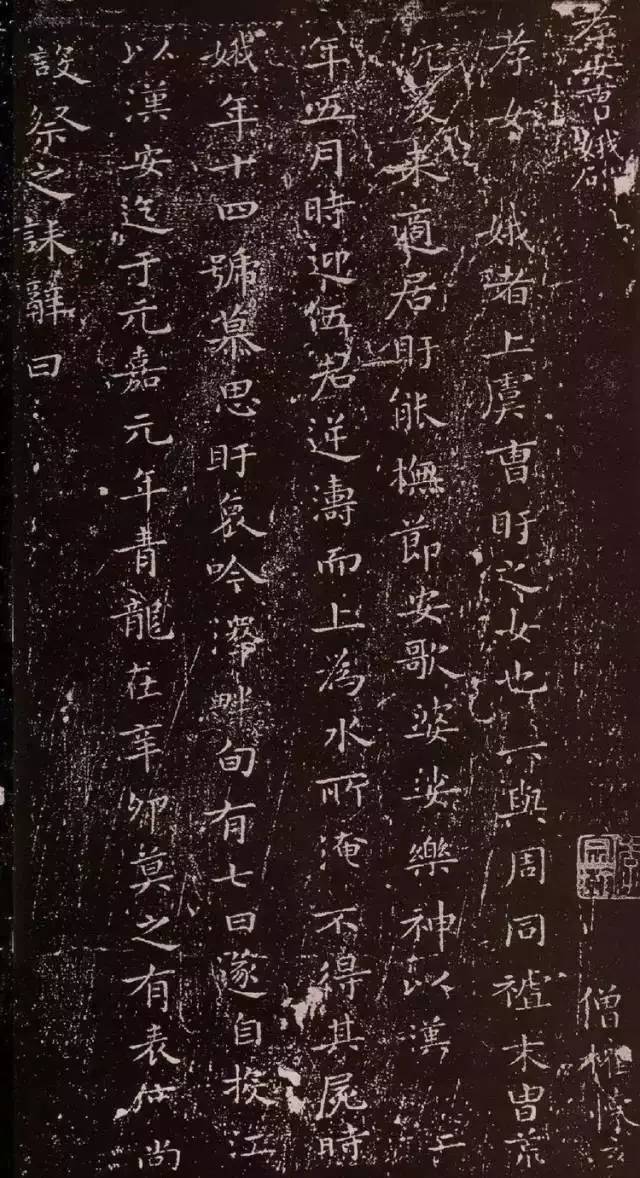 孝女曹娥碑
孝女 娥者上虞曹盱之女也 與周同祖末冑荒
沉爰来適居盱能撫節安歌婆娑樂神以漢 二
年五月時迎伍君逆濤而上為水所淹不得其屍時
娥年十四號慕思盱哀吟澤畔旬有七日遂自投江
以漢安迄于元嘉元年青龍在辛卯莫之有表
設祭之誄辭曰
僧權